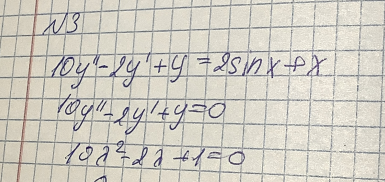 №3
10y''-2y'+y=2sinx+x
10y''-2y'+y=0
10λ²-2λ+1=0